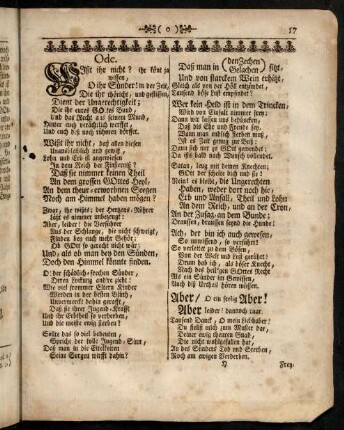 ( o ) 17
Ode.
Wißt ihr nicht? ihr könt ja
wissen,
O ihr Sünder! in der Zeit,
Die ihr schnöde, und geflissen,
Dient der Ungerechtigkeit;
Die ihr euers GOttes Band,
Und das Recht aus seiner Mund,
Hinter euch verächtlich werfet,
Und euch diß noch rühmen dörffet.
Wißt ihr nicht, daß allen diesen
Unauslöschlich und gewiß,
Lohn und Erb ist angewiesen
In dem Reich der Finsternis?
Daß sie nimmer keinen Theil
An dem großen GOttes Heyl,
An dem theur-erworbenen Seegen
Noch am Himmel haben mögen?
Zwar, ihr wißts; der Herzens-Rührer
läßt es nimmer unbezeugt:
Aber, leider! der Verführer
Aus der Schlange, die nicht schweigt,
Finden bey euch mehr Gehör;
Ob GOtt so gerecht nicht wär;
Und, als ob man bey den Sünden,
Doch den Himmel könnte finden.
O! der schädlich-frechen Sünder,
Deren
Wie viel frommer Eltern Kinder
Werden in der besten Blüth,
Unvermerkt dahin gerafft,
Daß sie ihrer Jugend-Krafft
Und ihr Erbtheil so verderben,
Und die meiste ewig sterben?
Sollte das so viel bedeuten,
Spricht der tolle Jugend-Sinn,
Daß man in die Eitelkeiten
Seine Sorgen wirfft dahin?
Daß man in (den Zechen
Gelachen) sitzt,
Und von starckem Wein erhitzt,
Gleich als von der Höll entzündet,
Tausend böse Lust empfindet?
Wer kein Held ist in dem Trincken,
Wird von Einfalt nimmer frey;
Denn wir lassen uns bedüncken,
Daß diß Ehr und Freude sey,
Wann man endlich Becher weis,
Ist es Zeit genug zur Reis:
Dann sich nur zu GOtt gewendet;
So ists bald nach Wunsch vollendet.
Satan, leug mit deinen Knechten:
GOtt der scheide dich und sie:
Nein! es bleibt, die Ungerechten
Haben, weder dort noch hie,
Erb und Anfall, Theil und Lohn
An dem Reich, und an der Cron,
An der Zusag, an dem Bunde;
Draussen, draussen seynd die Hunde!
Ach, der bin ich auch gewesen,
So unwissend, so verführt!
So verleitet zu dem Bösen,
Von der Welt und Lust gerührt!
Drum hab ich, als böser Knecht
Nach des heil'gen GOttes Recht
Als ein Sünder im Gewissen,
Auch diß Urtheil hören müssen.
Aber! O ein seelig Aber!
Aber leider! dannoch wahr.
Tausend Danck, O mein Liebhaber!
Du stellst mich zum Muster dar,
Deiner ewig theuren Gnad,
Die nicht wohlgefallen hat,
An des Sünders Tod und Sterben,
Noch am ewigen Verderben.
Y Frey-